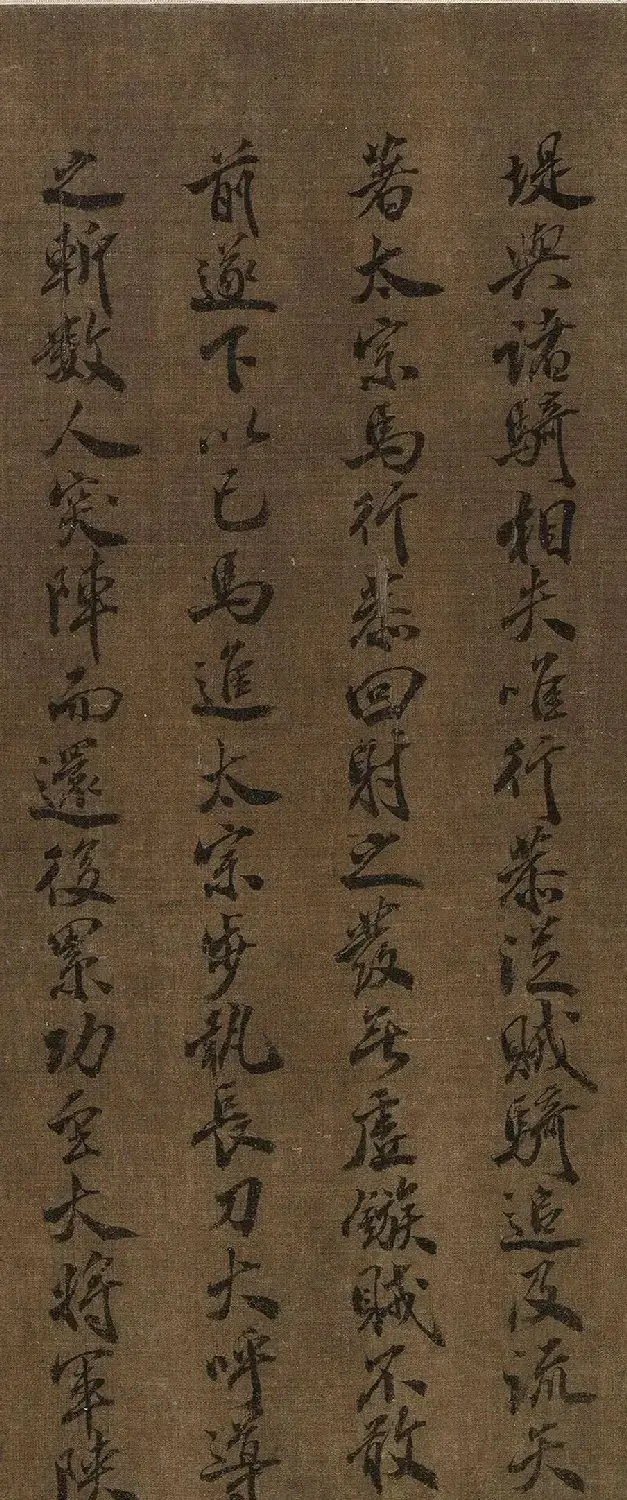 堤與諸騎相失唯行恭從賊騎追及流矢
著太宗馬行恭回射之發無虛鏃賊不敢
前遂下以己馬進太宗步執長刀大呼導
之斬數人突陣而還後累功至大將軍陝